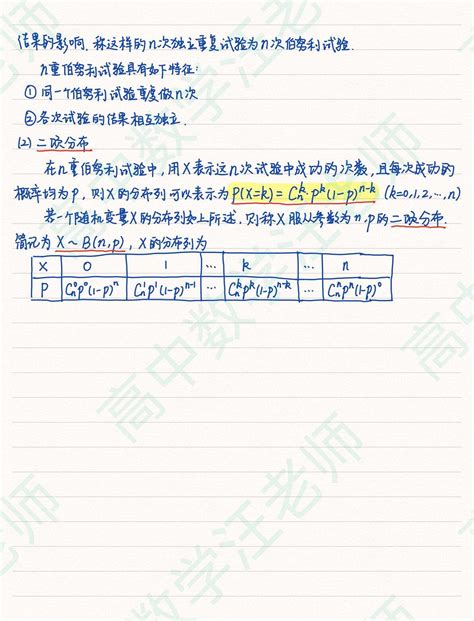 结果的影响.称这样的n次独立重复试验为n次伯努利试验.
n重伯努利试验具有如下特征:
①同一个伯努利试验重复做n次
②各次试验的结果相互独立.
(2)二项分布
在n重伯努利试验中,用X表示这n次试验中成功的次数,且每次成功的
概率均为P,则X的分布列可以表示为P(X=k)=Cₙᵏ·pᵏ(1-p)ⁿ⁻ᵏ (k=0,1,2,…,n)
若一个随机变量X的分布列如上所述.则称X服从参数为n,p的二项分布.
简记为X~B(n,p),X的分布列为
X 0 1 … k … n
P Cₙ⁰p⁰(1-p)ⁿ Cₙ¹p¹(1-p)ⁿ⁻¹ … Cₙᵏpᵏ(1-p)ⁿ⁻ᵏ … Cₙⁿpⁿ(1-p)⁰
高中数学汪老师